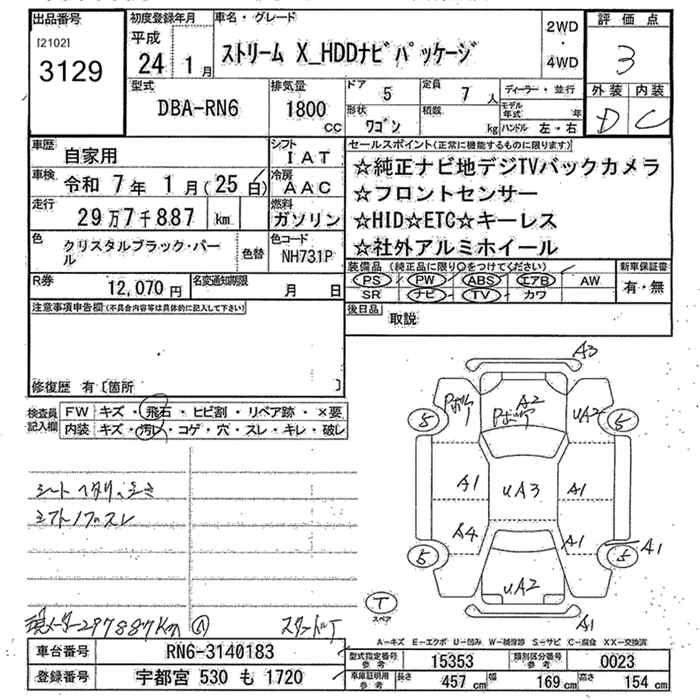 出品番号
[2102]
3129
初度登録年月
平成
24 1月
車名・グレード
ストリーム X_HDDナビパッケージ
2WD
・
4WD
評価点
3
外装 内装
D C
型式
DBA-RN6
排気量
1800
CC
ドア 5
定員 7人
形状 ワゴン
積数 kg
ディーラー・並行
モデル年式 年
ハンドル 左・右
車歴 自家用
シフト IAT
車検 令和 7年 1月(25日)
冷房 AAC
走行 29万7千887 km
燃料 ガソリン
色 クリスタルブラック・パール
色替
色コード NH731P
R券 12,070円
名変通知期限 月 日
セールスポイント(正常に機能するものに限ります)
☆純正ナビ地デジTVバックカメラ
☆フロントセンサー
☆HID☆ETC☆キーレス
☆社外アルミホイール
装備品 (純正品に限り○をつけてください)
PS PW ABS エアB AW
SR ナビ TV カワ
新車保証書
有・無
後日品 取説
注意事項申告欄(不具合内容等は具体的に記入して下さい)
修復歴 有〔箇所 〕
検査員記入欄
FW キズ・飛石・ヒビ割・リペア跡・×要
内装 キズ・汚レ・コゲ・穴・スレ・キレ・破レ
シートヘタリ、シミ
シフトノブスレ
現メーター297887Km A
スタッドレスT
A3
A2
UA2
5 5
A1 UA3 A1
A4 A1
5 5 A1
UA2
A1
T
スペア
A―キズ E―エクボ U―凹み W―補修跡 S―サビ C―腐食 XX―交換済
車台番号 RN6-3140183
登録番号 宇都宮 530 も 1720
型式指定番号 参考 15353
類別区分番号 参考 0023
車庫証明用 参考 長さ 457 cm 幅 169 cm 高さ 154 cm